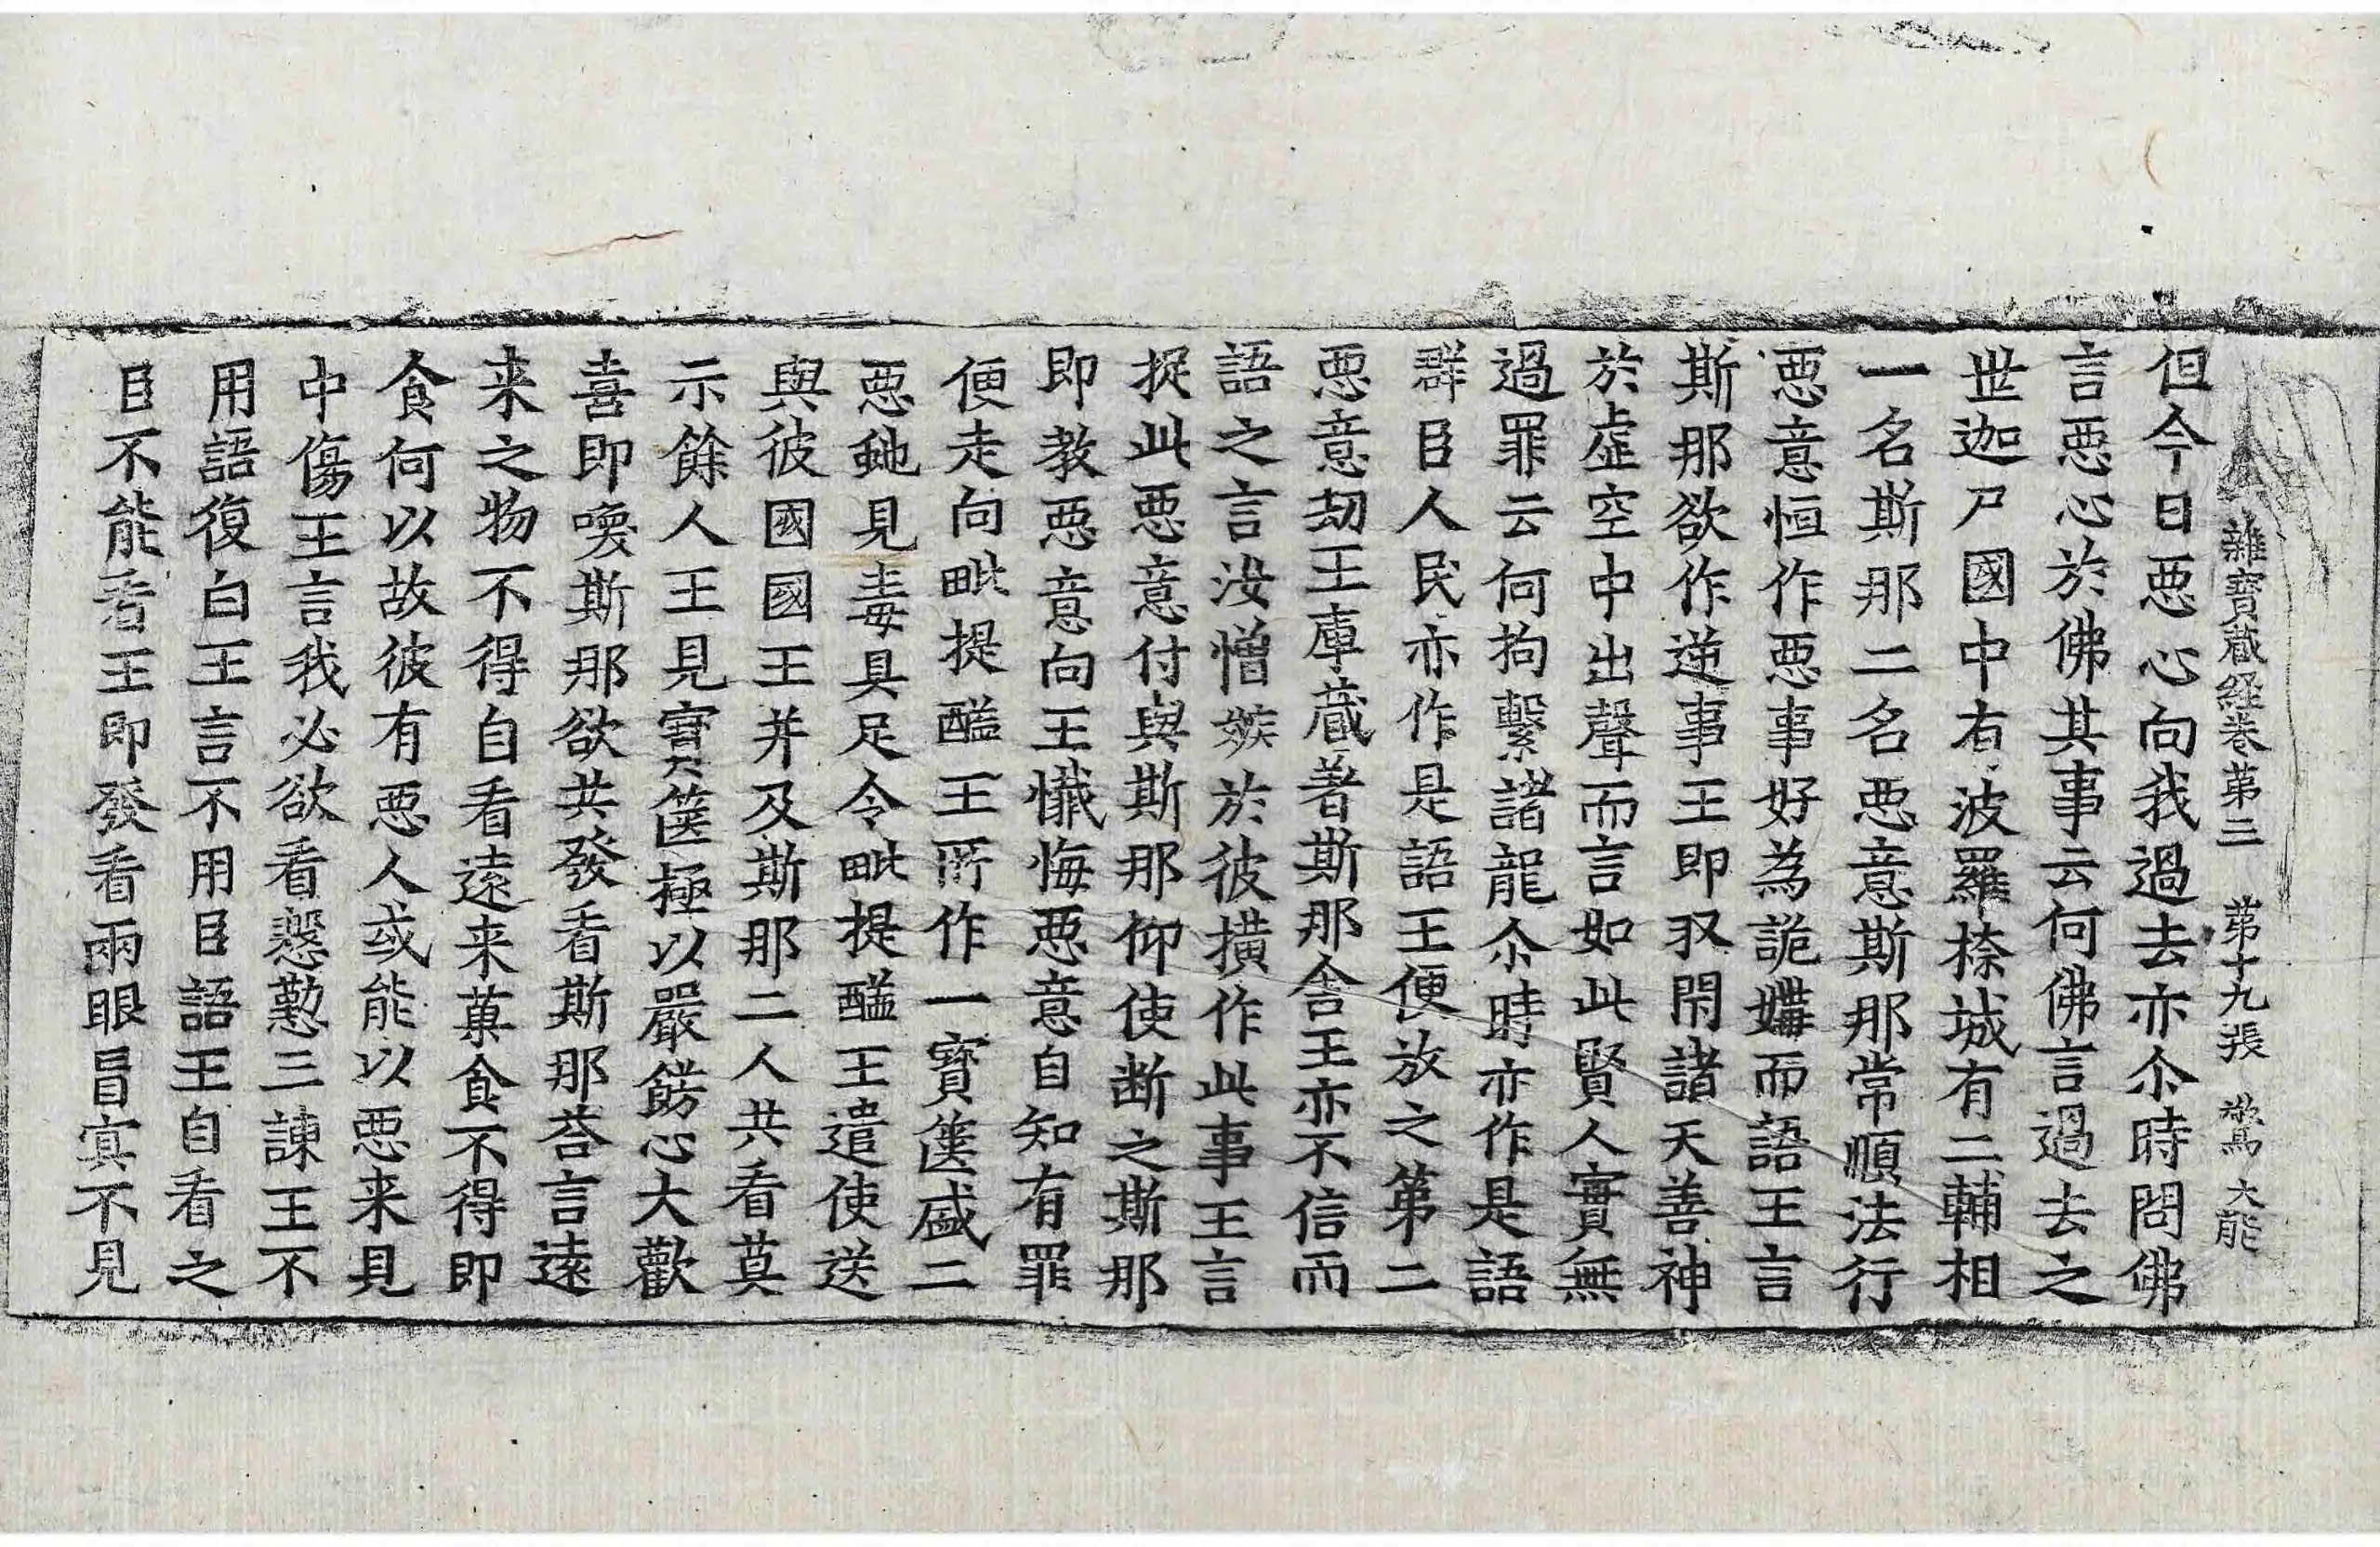 雜寶蔵経卷苐三 苐十九張 鷟 大能
但今日惡心向我過去亦尒時問佛
言惡心於佛其事云何佛言過去之
世迦尸國中有波羅㮈城有二輔相
一名斯那二名惡意斯那常順法行
惡意恒作惡事好為詭媾而語王言
斯那欲作逆事王即収閇諸天善神
於虛空中出聲而言如此賢人實無
過罪云何拘繫諸龍尒時亦作是語
群臣人民亦作是語王便放之第二
惡意劫王庫蔵著斯那舍王亦不信而
語之言汝憎嫉於彼撗作此事王言
捉此惡意付與斯那仰使断之斯那
即教惡意向王懺悔惡意自知有罪
便走向毗提醯王所作一寶篋盛二
惡虵見毒具足令毗提醯王遣使送
與彼國國王并及斯那二人共看莫
示餘人王見寶篋極以嚴餝心大歡
喜即喚斯那欲共發看斯那荅言遠
来之物不得自看遠来菓食不得即
食何以故彼有惡人或能以惡来見
中傷王言我必欲看慇懃三諫王不
用語復白王言不用臣語王自看之
臣不能看王即發看兩眼冒㝠不見